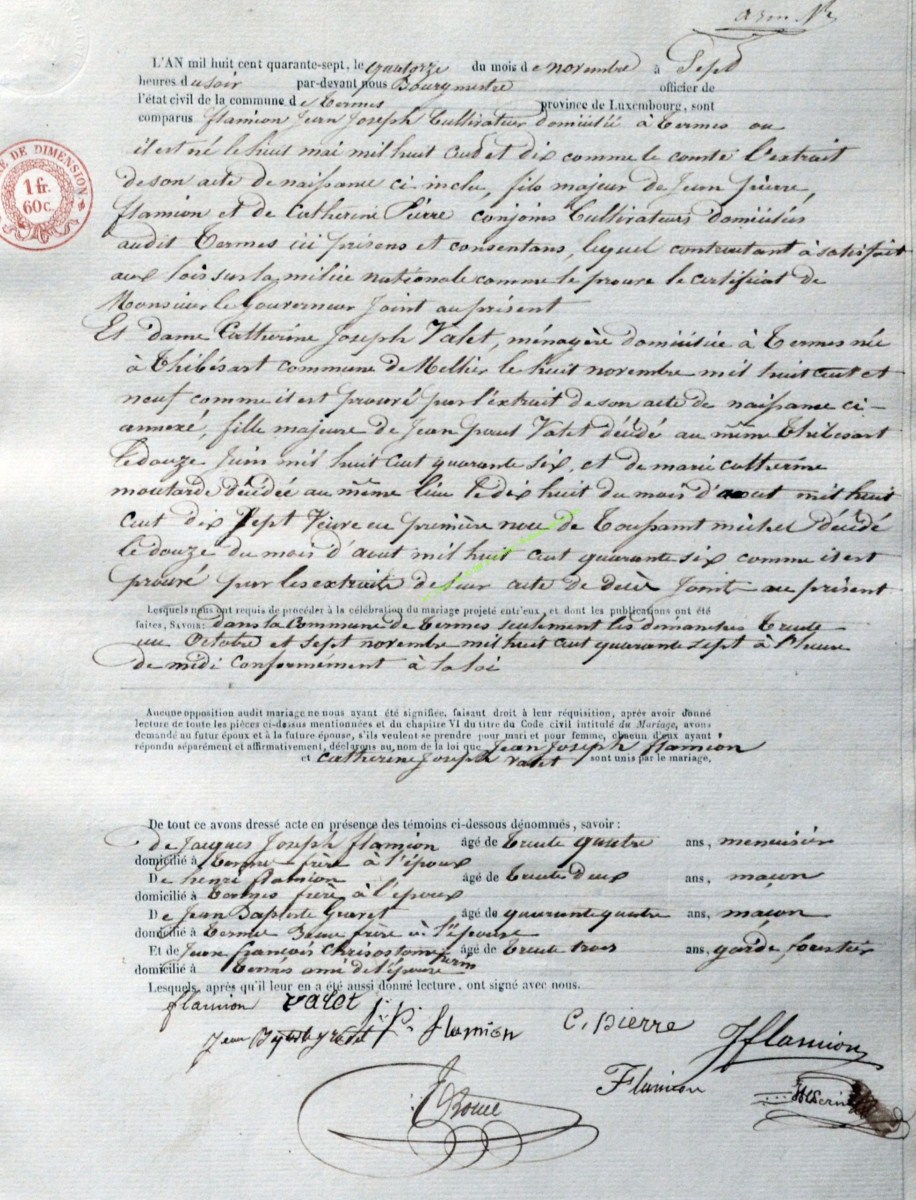 L'AN mil huit cent quarante-sept, le quatorze du mois de novembre à Sept
heures du soir par-devant nous Bourgmestre officier de
l'état civil de la commune de termes province de Luxembourg, sont
comparus flamion Jean Joseph Cultivateur domicilié à termes ou
il est né le huit mai mil huit Cent et dix comme le conste l'extrait
de son acte de naissance ci inclu, fils majeur de Jean pierre,
flamion et de Catherine Pierre conjoins Cultivateurs domiciliés
audit termes ici présens et consentans, lequel contractant à satisfait
aux lois sur la milice nationale comme le prouve le certificat de
Monsieur le Gouverneur Joint au présent
Et dame Catherine Joseph Valet, ménagère domiciliée à termes née
à thibésart commune de Mellier le huit novembre mil huit cent et
neuf comme il est prouvé par l'extrait de son acte de naissance ci-
annexé, fille majeure de Jean Valet décédé au même thibesart
le douze Juin mil huit cent quarante six, et de marie catherine
moutarde décédée au même lieu le dix huit du mois d'aout mil huit
cent dix Sept Veuve en première noce de toussaint michel décédé
le douze du mois d'aout mil huit cent quarante six comme il est
prouvé par les extraits de leur acte de décès Joint au présent
Lesquels nous ont requis de procéder à la célébration du mariage projeté entr'eux, et dont les publications ont été
faites, SAVOIR: dans la Commune de termes seulement les dimanches trente
un Octobre et sept novembre mil huit cent quarante sept à l'heure
de midi conformément à la loi
Aucune opposition audit mariage ne nous ayant été signifiée, faisant droit à leur réquisition, après avoir donné
lecture de toute les pièces ci-dessus mentionnées et du chapitre VI du titre du Code civil intitulé du Mariage, avons
demandé au futur époux et à la future épouse, s'ils veulent se prendre pour mari et pour femme, chacun d'eux ayant
répondu séparément et affirmativement, déclarons au nom de la loi que Jean Joseph flamion
et Catherine Joseph Valet sont unis par le mariage,
De tout ce avons dressé acte en présence des témoins ci-dessous dénommés, savoir:
de Jacques Joseph flamion âgé de trente quatre ans, menuisier
domicilié à termes frère à l'époux
De henri flamion âgé de trente deux ans, maçon
domicilié à termes frère à l'époux
De Jean Baptiste âgé de quarante quatre ans, maçon
domicilié à termes Beau frère à l'épouse
Et de Jean françois Chrisostome âgé de trente trois ans, garde forestier
domicilié à termes ami de l'épouse
Lesquels, après qu'il leur en a été aussi donné lecture, ont signé avec nous.
flamion Valet j. p. flamion C. Pierre Jflamion
Jean Flamion
DE DIMENSION
1 fr.
60 c.